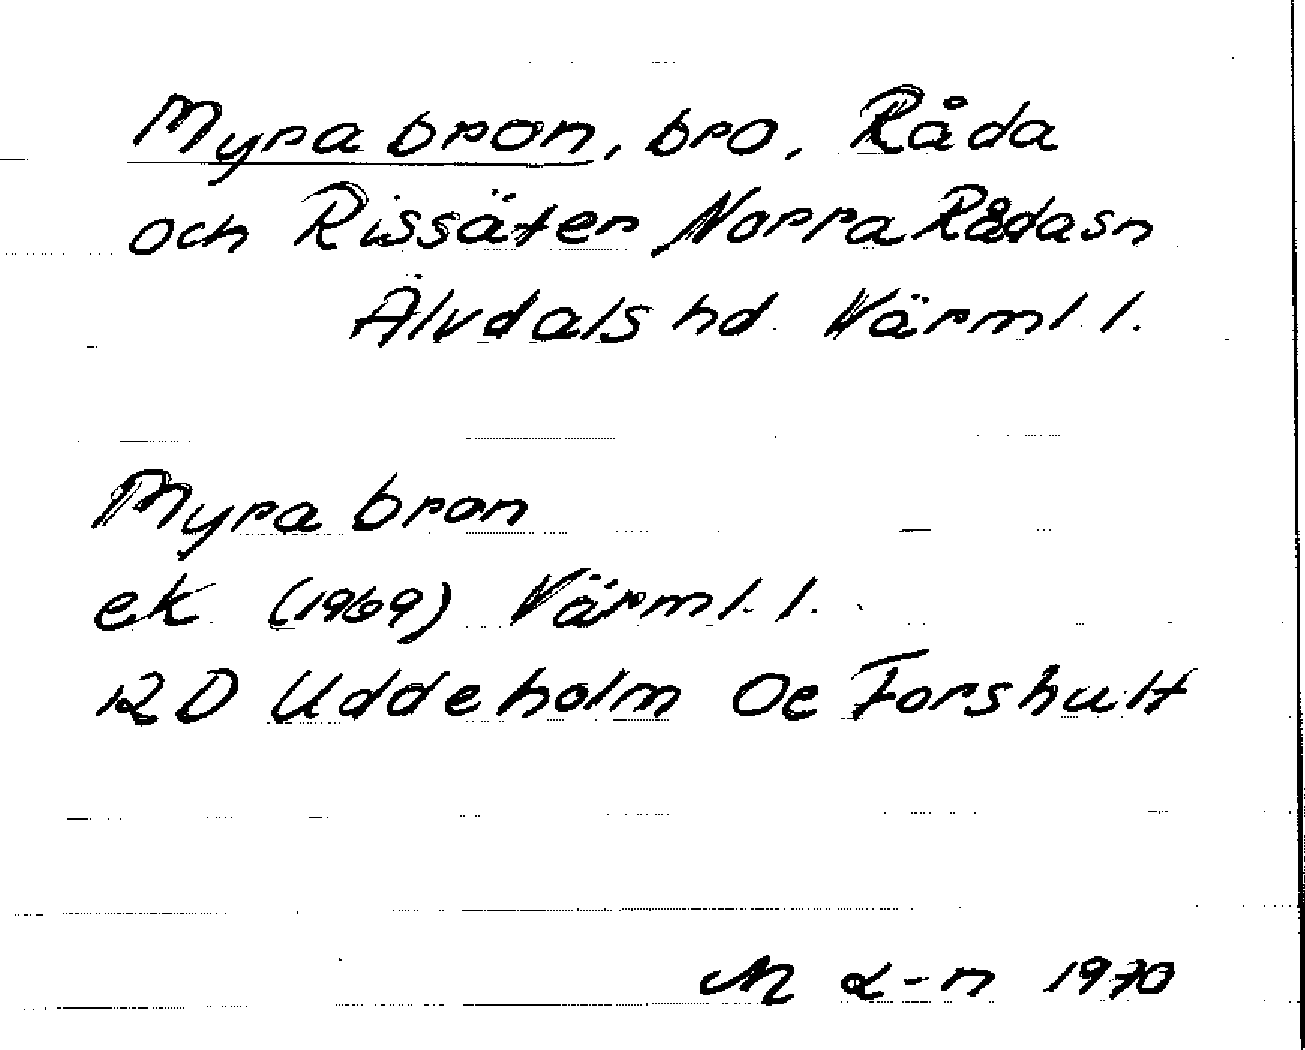 Myrabron, bro, Råda
och Rissäter Norra Råda sn
Älvdals hd Värml. l.
Myrabron
ek (1969) Värml. l.
12 D Uddeholm Oe Forshult
M L-n 1970